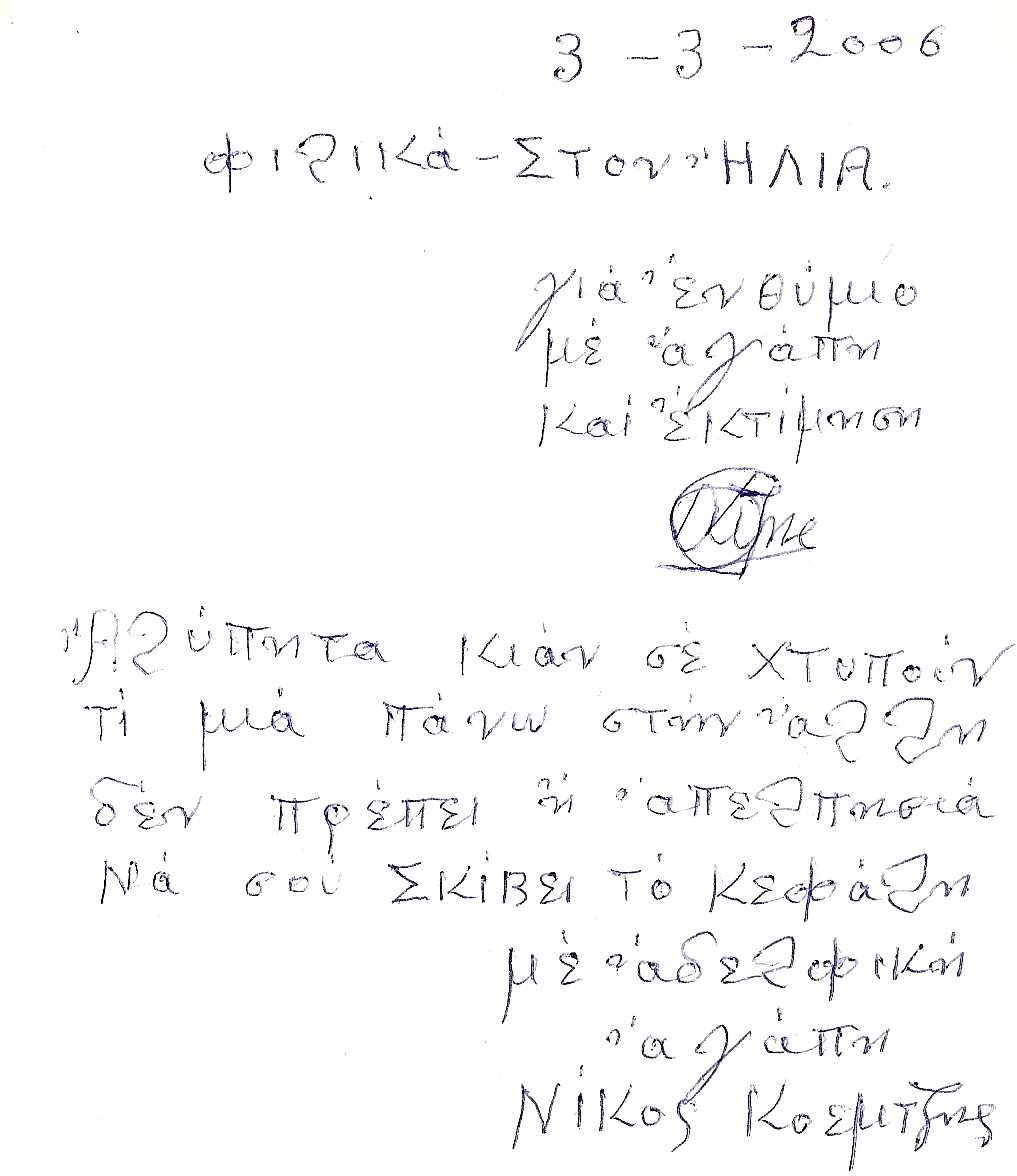 3 - 3 - 2006
φιλικά - ΣΤον ἨΛΙΑ.
γιά ἐνθύμιο
μέ ἀγάπη
και ἐκτίμηση
Ἀλύπητα κιάν σέ χτυποίν
τί μιά πάνω στήν ἀλλη
δέν πρέπει ἡ ἀπελπησιά
Νά σού ΣκίΒει τό κεφάλη
μέ ἀδελφική
ἀγάπη
Νίκος Κοεμτζης